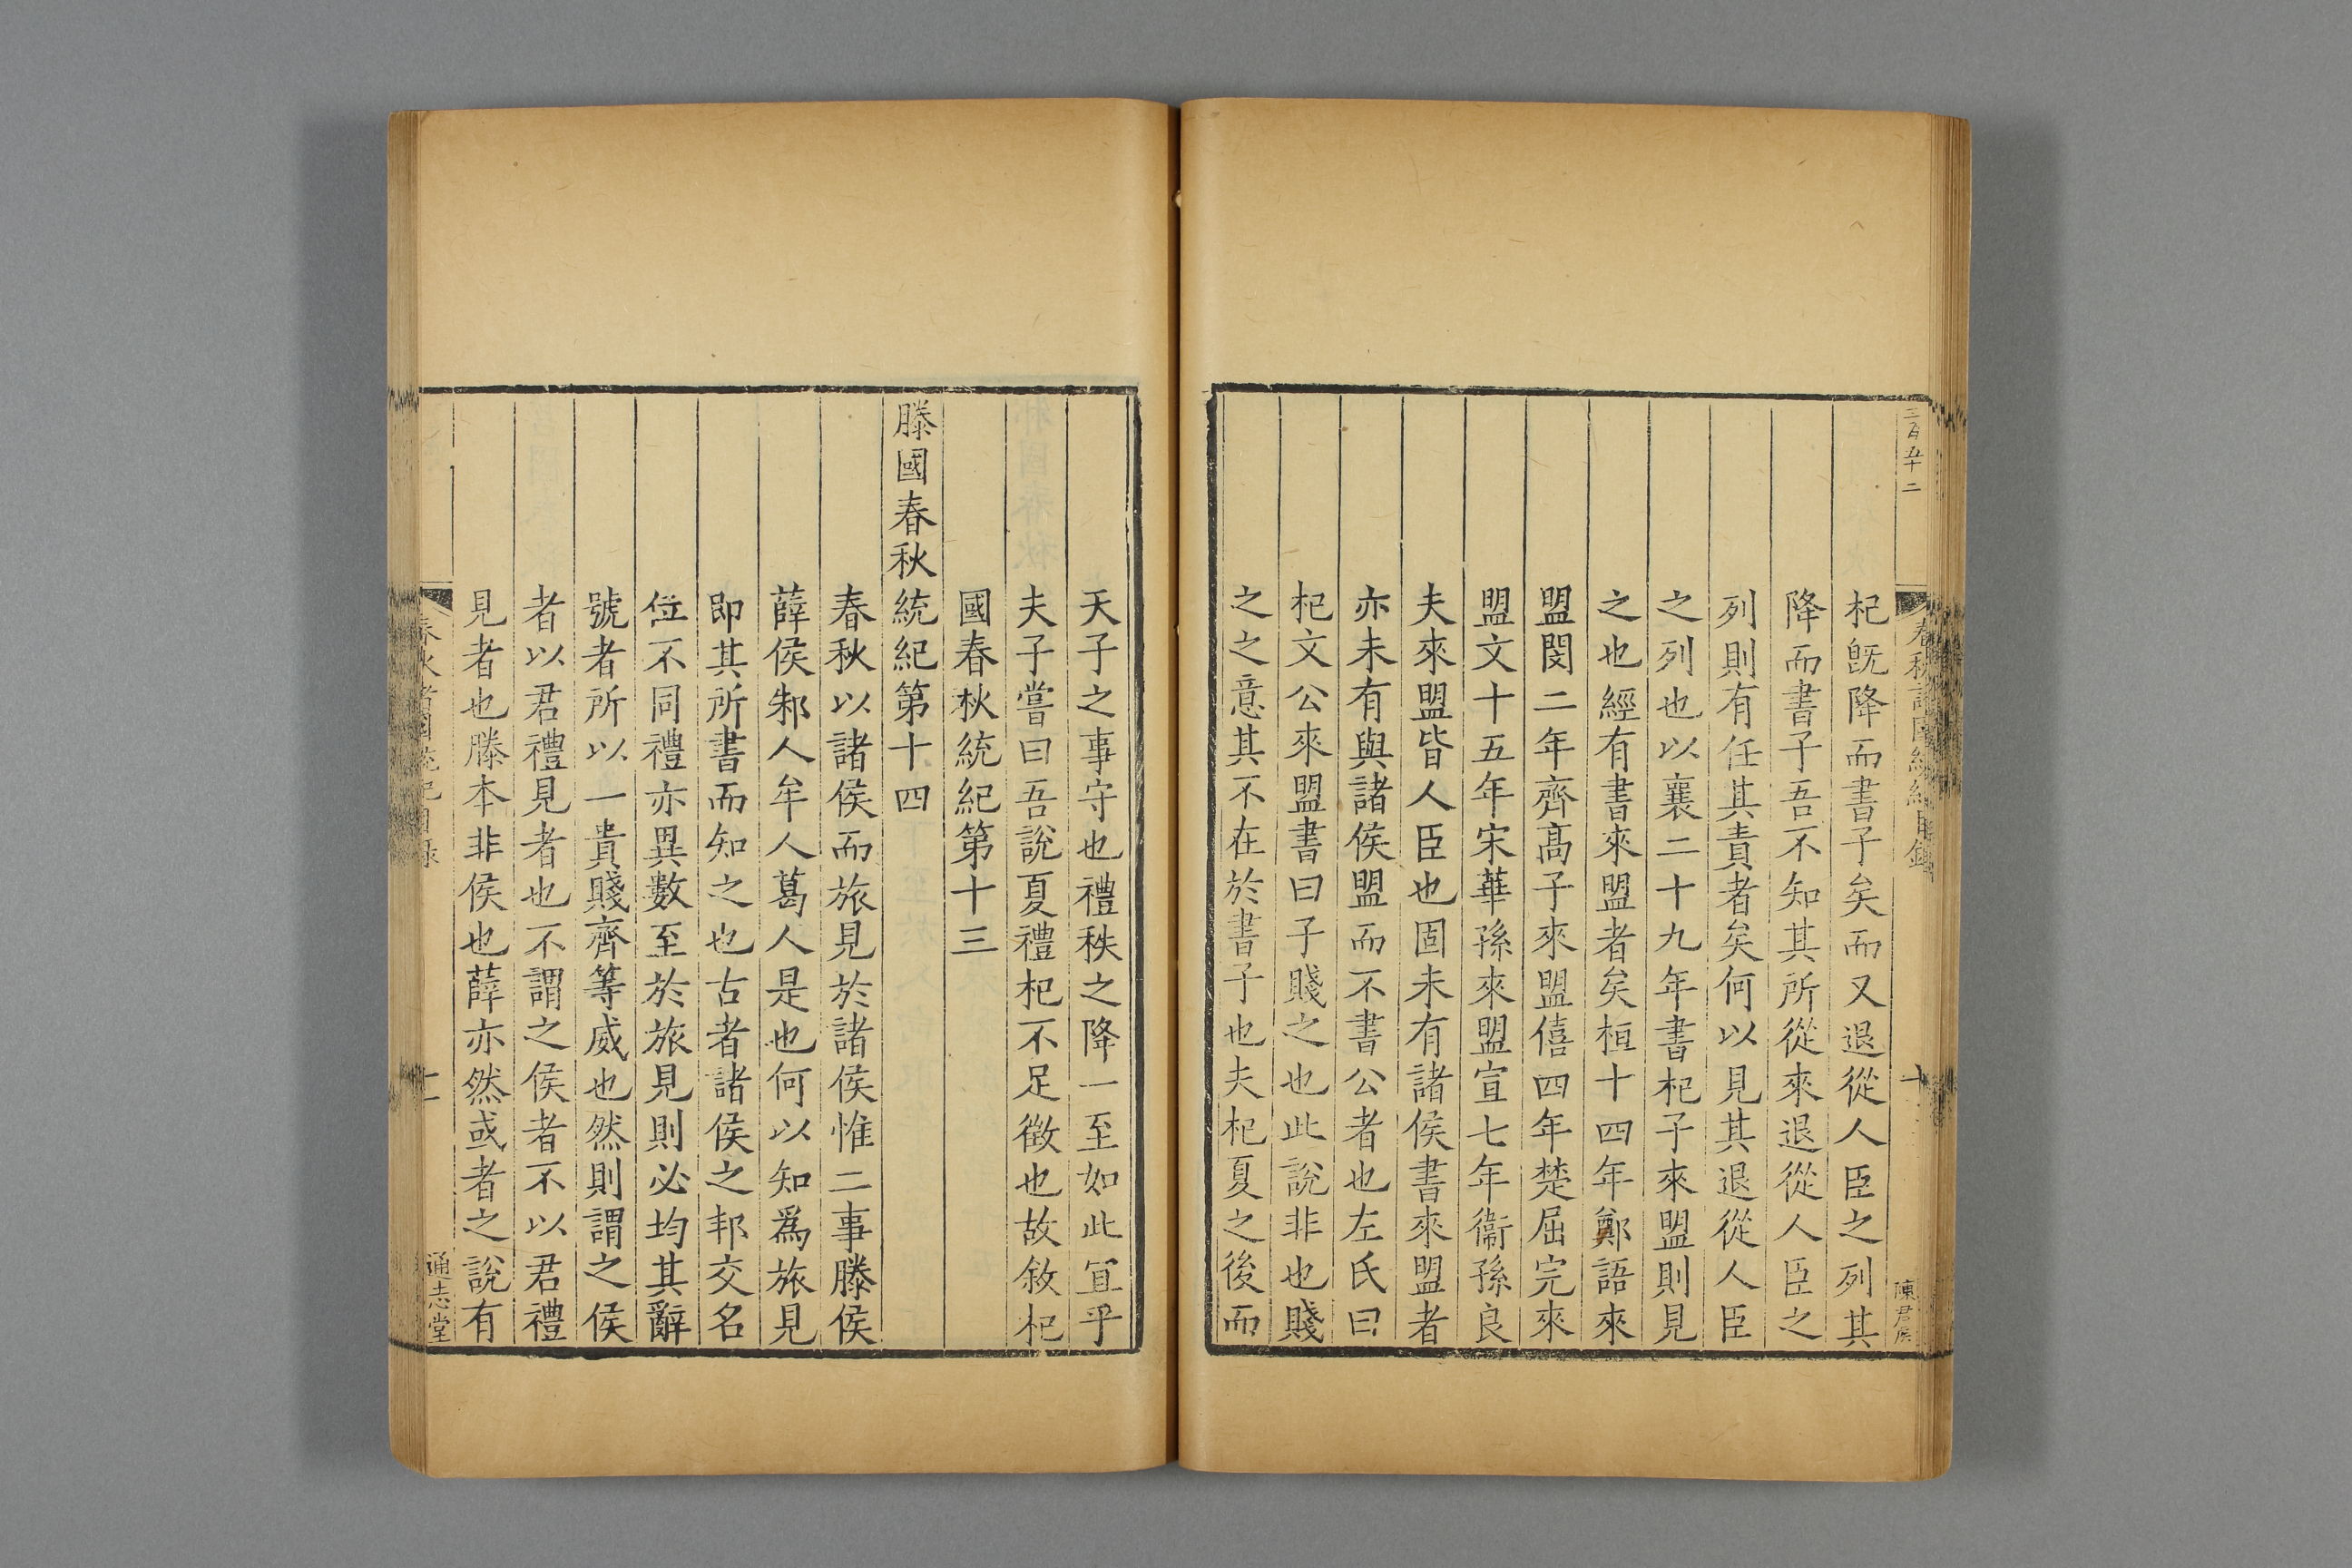 三百五十二
春秋諸國統紀目錄
陳君侯
杞旣降而書子矣而又退從人臣之列其
降而書子吾不知其所從來退從人臣之
列則有任其責者矣何以見其退從人臣
之列也以襄二十九年書杞子來盟則見
之也經有書來盟者矣桓十四年鄭語來
盟閔二年齊高子來盟僖四年楚屈完來
盟文十五年宋華孫來盟宣七年衞孫良
夫來盟皆人臣也固未有諸侯書來盟者
亦未有與諸侯盟而不書公者也左氏曰
杞文公來盟書曰子賤之也此說非也賤
之之意其不在於書子也夫杞夏之後而
天子之事守也禮秩之降一至如此宜乎
夫子嘗曰吾說夏禮杞不足徵也故敘杞
國春秋統紀第十三
滕國春秋統紀第十四
春秋以諸侯而旅見於諸侯惟二事滕侯
薛侯邾人牟人葛人是也何以知爲旅見
卽其所書而知之也古者諸侯之邦交名
位不同禮亦異數至於旅見則必均其辭
號者所以一貴賤齊等威也然則謂之侯
者以君禮見者也不謂之侯者不以君禮
見者也滕本非侯也薛亦然或者之說有
春秋諸國統紀目錄
通志堂